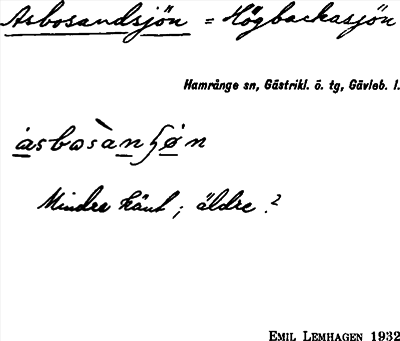 Asbosandsjön = Högbackasjön
Hamrånge sn, Gästrikl. ö. tg, Gävleb. l.
Mindre känt ; äldre ?
EMIL LEMHAGEN 1932